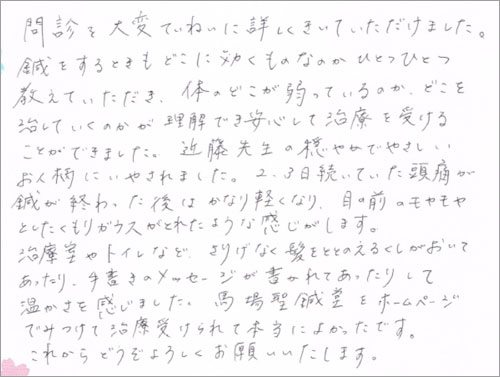 問診を大変ていねいに詳しくきいていただけました。
鍼をするときもどこに効くものなのかひとつひとつ
教えていただき、体のどこが弱っているのか、どこを
治していくのかが理解でき安心して治療を受ける
ことができました。近藤先生の穏やかでやさしい
お人柄にいやされました。2、3日続いていた頭痛が
鍼が終わった後はかなり軽くなり、目の前のモヤモヤ
としたくもりガラスがとれたような感じがします。
治療室やトイレなど、さりげなく髪をととのえるくしがおいて
あったり、手書きのメッセージが書かれてあったりして
温かさを感じました。馬場聖鍼堂をホームページ
でみつけて治療受けられて本当によかったです。
これからどうぞよろしくお願いいたします。